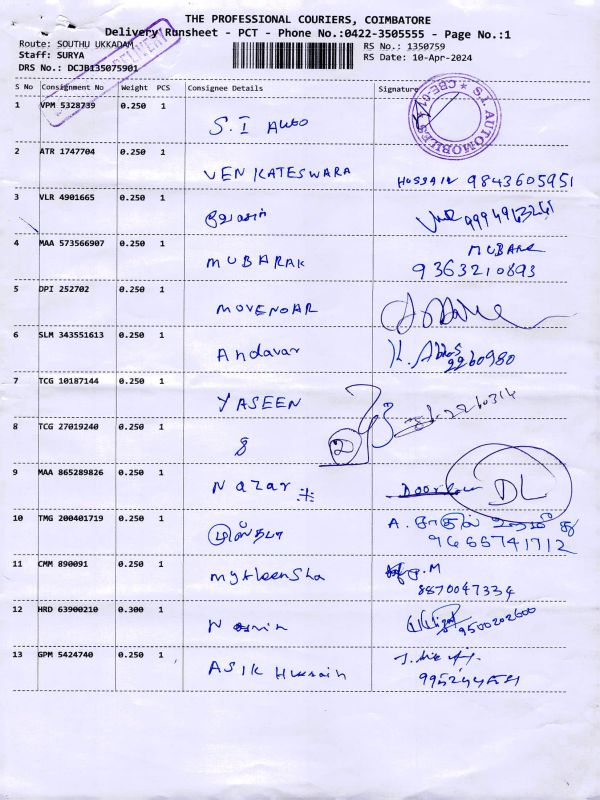 THE PROFESSIONAL COURIERS, COIMBATORE
Delivery Runsheet - PCT - Phone No.:0422-3505555 - Page No.:1
Route: SOUTHU UKKADAM
RS No.: 1350759
Staff: SURYA
RS Date: 10-Apr-2024
DRS No.: DCJB135075901
S No Consignment No Weight PCS Consignee Details Signature
1 VPM 5328739 0.250 1 S.I Auto
S.T. AUTOMOBILES
2 ATR 1747704 0.250 1 VENKATESWARA HUSSAIN 9843605951
3 VLR 4901665 0.250 1
4 MAA 573566907 0.250 1 MUBARAK MUBARK
9363210893
5 DPI 252702 0.250 1 MOVENDAR
6 SLM 343551613 0.250 1 Andavar K. Abbas
2260980
7 TCG 10187144 0.250 1 YASEEN
8 TCG 27019240 0.250 1 8 2
9 MAA 865289826 0.250 1 Nazar DL
10 TMG 200401719 0.250 1 முஸ்தபா
11 CMM 890091 0.250 1
8870047334
12 HRD 63900210 0.300 1
9500202600
13 GPM 5424740 0.250 1 ASIK Hussain